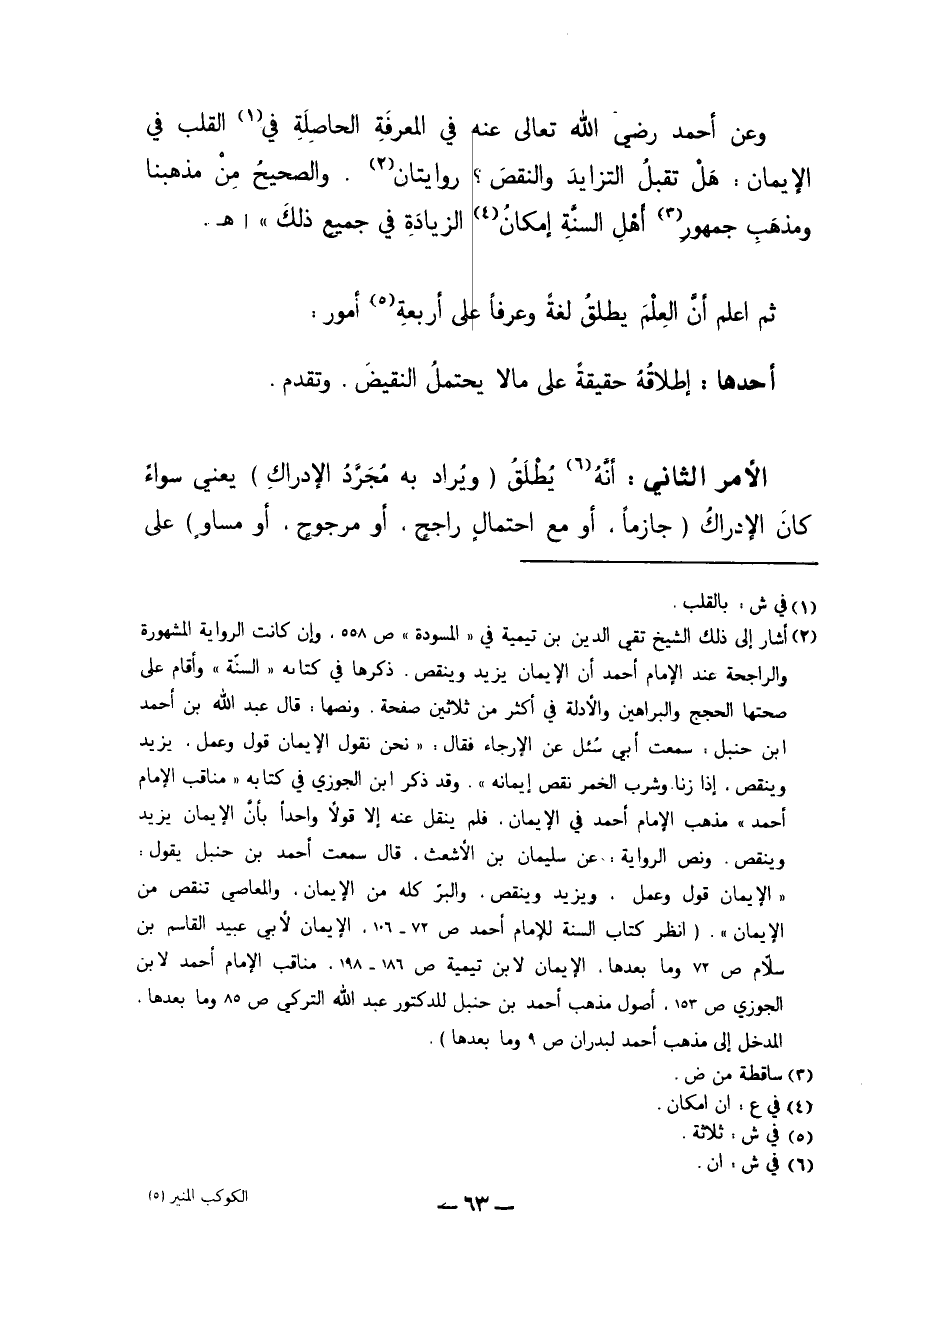 وعن أحمد رضي الله تعالى عنه في المعرفَةِ الحاصلَةِ في(١) القلب في
الإيمان : هَلْ تقبلُ التزايدَ والنقصَ ؟ روايتان(٢) . والصحيحُ مِنْ مذهبنا
ومذهَبِ جمهورِ(٣) أهْلِ السنَّةِ إمكانُ(٤) الزيادَةِ في جميعِ ذلكَ » ا هـ .
ثم اعلم أنَّ العِلْمَ يطلقُ لغةً وعرفاً على أربعةِ(٥) أمور :
أحدها : إطلاقُهُ حقيقةً على مالا يحتملُ النقيضَ . وتقدم .
الأمر الثاني : أنَّهُ(٦) يُطْلَقُ ( ويُراد به مُجَرَّدُ الإدراكِ ) يعني سواءً
كانَ الإدراكُ ( جازماً ، أو مع احتمالٍ راجحٍ ، أو مرجوحٍ ، أو مساوٍ ) على
(١) في ش : بالقلب .
(٢) أشار إلى ذلك الشيخ تقي الدين بن تيمية في « المسودة » ص ٥٥٨ ، وإن كانت الرواية المشهورة
والراجحة عند الإمام أحمد أن الإيمان يزيد وينقص . ذكرها في كتابه « السنّة » وأقام على
صحتها الحجج والبراهين والأدلة في أكثر من ثلاثين صفحة . ونصها : قال عبد الله بن أحمد
ابن حنبل : سمعت أبي سُئل عن الإرجاء فقال : « نحن نقول الإيمان قول وعمل ، يزيد
وينقص ، إذا زنا وشرب الخمر نقص إيمانه » . وقد ذكر ابن الجوزي في كتابه « مناقب الإمام
أحمد » مذهب الإمام أحمد في الإيمان ، فلم ينقل عنه إلا قولًا واحداً بأنَّ الإيمان يزيد
وينقص . ونص الرواية : عن سليمان بن الأشعث ، قال سمعت أحمد بن حنبل يقول :
« الإيمان قول وعمل ، ويزيد وينقص ، والبرّ كله من الإيمان ، والمعاصي تنقص من
الإيمان » . ( انظر كتاب السنة للإمام أحمد ص ٧٢ ـ ١٠٦ ، الإيمان لأبي عبيد القاسم بن
سلّام ص ٧٢ وما بعدها ، الإيمان لابن تيمية ص ١٨٦ ـ ١٩٨ ، مناقب الإمام أحمد لابن
الجوزي ص ١٥٣ ، أصول مذهب أحمد بن حنبل للدكتور عبد الله التركي ص ٨٥ وما بعدها ،
المدخل إلى مذهب أحمد لبدران ص ٩ وما بعدها ) .
(٣) ساقطة من ض .
(٤) في ع : ان امكان .
(٥) في ش : ثلاثة .
(٦) في ش : ان .
ـ ٦٣ ـ
الكوكب المنير (٥)